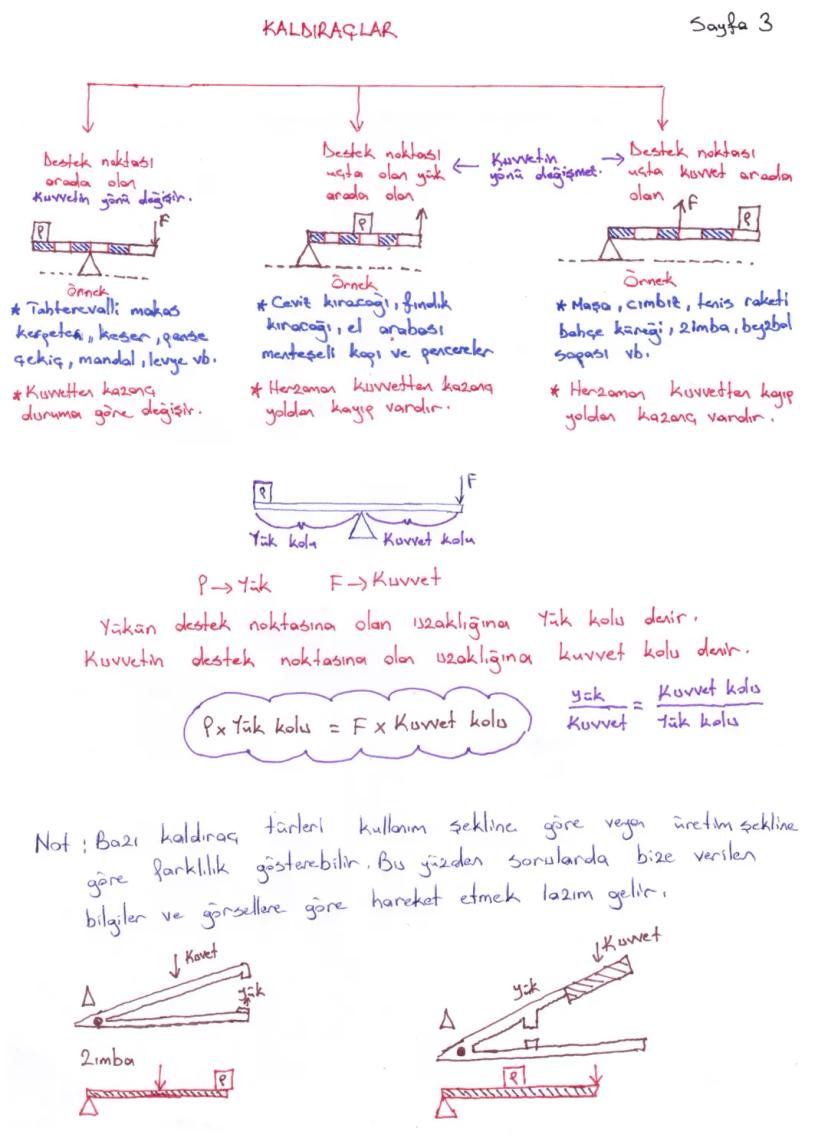 KALDIRAÇLAR
Sayfa 3
Destek noktası
arada olan
Kuvvetin yönü değişir.
P
F
Örnek
* Tahterevalli makas
kerpeten, keser, pense
çekiç, mandal, levye vb.
* Kuvvetten kazanç
duruma göre değişir.
Destek noktası
uçta olan yük
arada olan
P
Örnek
* Ceviz kıracağı, fındık
kıracağı, el arabası
menteşeli kapı ve pencereler
* Herzaman kuvvetten kazanç
yoldan kayıp vardır.
Kuvvetin
yönü değişmez.
Destek noktası
uçta kuvvet arada
olan
F
P
Örnek
* Maşa, cımbız, tenis raketi
bahçe küreği, zımba, beyzbol
sopası vb.
* Herzaman kuvvetten kayıp
yoldan kazanç vardır.
P
F
Yük kolu
Kuvvet kolu
P → Yük F → Kuvvet
Yükün destek noktasına olan uzaklığına Yük kolu denir.
Kuvvetin destek noktasına olan uzaklığına kuvvet kolu denir.
P x Yük kolu = F x Kuvvet kolu
yük / Kuvvet = Kuvvet kolu / Yük kolu
Not : Bazı kaldıraç türleri kullanım şekline göre veya üretim şekline
göre farklılık gösterebilir. Bu yüzden sorularda bize verilen
bilgiler ve görsellere göre hareket etmek lazım gelir.
Kuvet
yük
Zımba
P
Kuvvet
yük
P